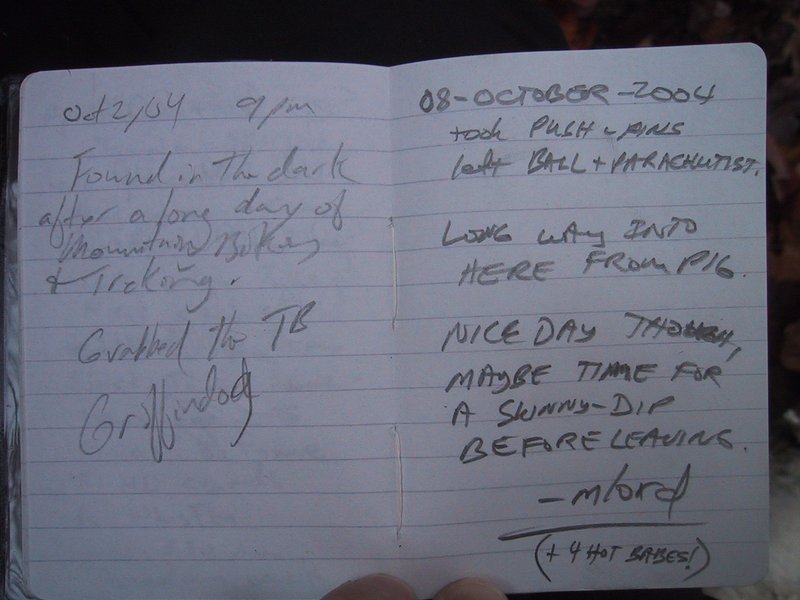 Oct 2/04 9pm
Found in the dark
after a long day of
Mountain Biking
+ Treking.
Grabbed the TB
Griffindog
08-OCTOBER-2004
took PUSH-PINS
left BALL + PARACHUTIST.
LONG WAY INTO
HERE FROM P16.
NICE DAY THOUGH,
MAYBE TIME FOR
A SKINNY-DIP
BEFORE LEAVING.
- mlord
(+ 4 HOT BABES!)